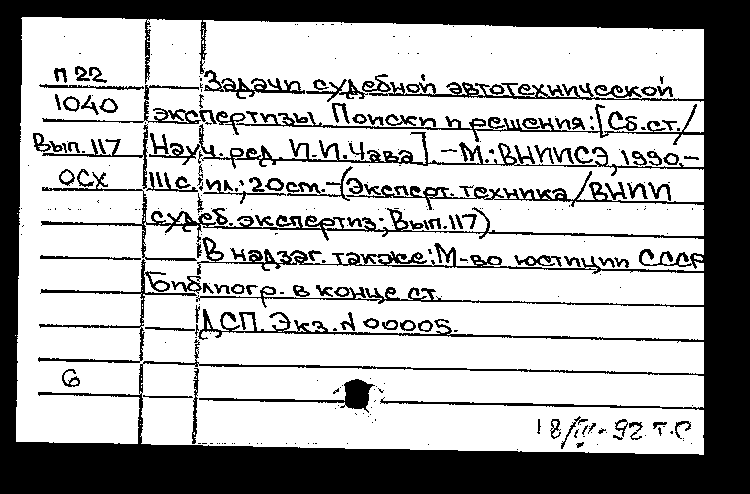 П 22 Задачи судебной автотехнической
1040 экспертизы. Поиски и решения: [Сб.ст./
Вып. 117 Науч. ред. И.И.Чава]. - М.: ВНИИСЭ, 1990.-
ОСХ 111 с. ил.; 20 см. - (Эксперт. техника / ВНИИ
судеб. экспертиз; Вып. 117).
В надзаг. также: М-во юстиции СССР
Библиогр. в конце ст.
ДСП. Экз. N 00005.
6
18/IV-92 Т.С